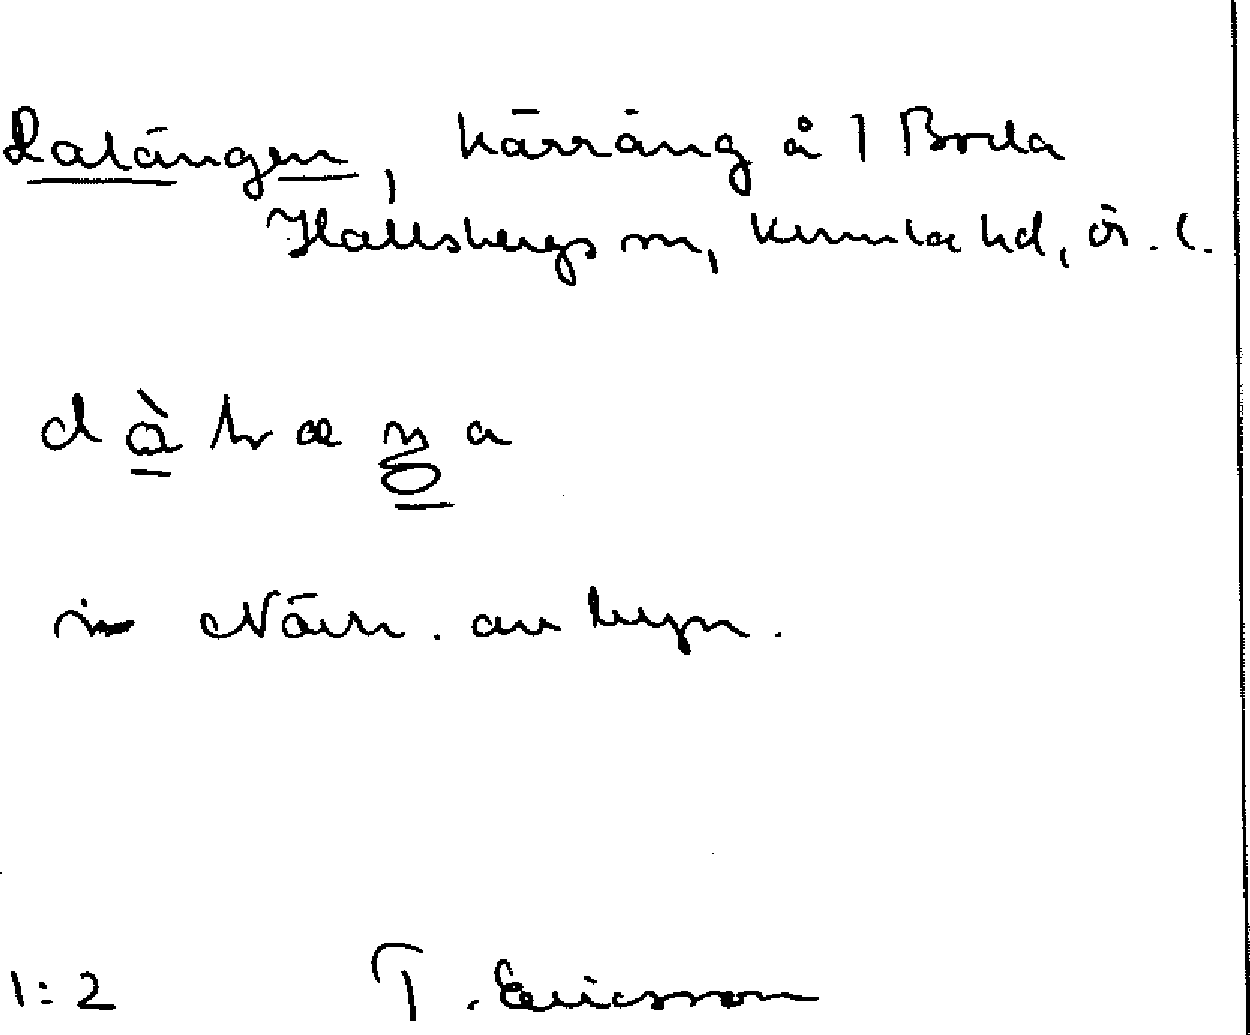 Dalängen, kärräng å 1 Boda
Hallsbergs sn, Kumla hd, Ör. l.
i närh. av byn.
1:2 T. Ericsson